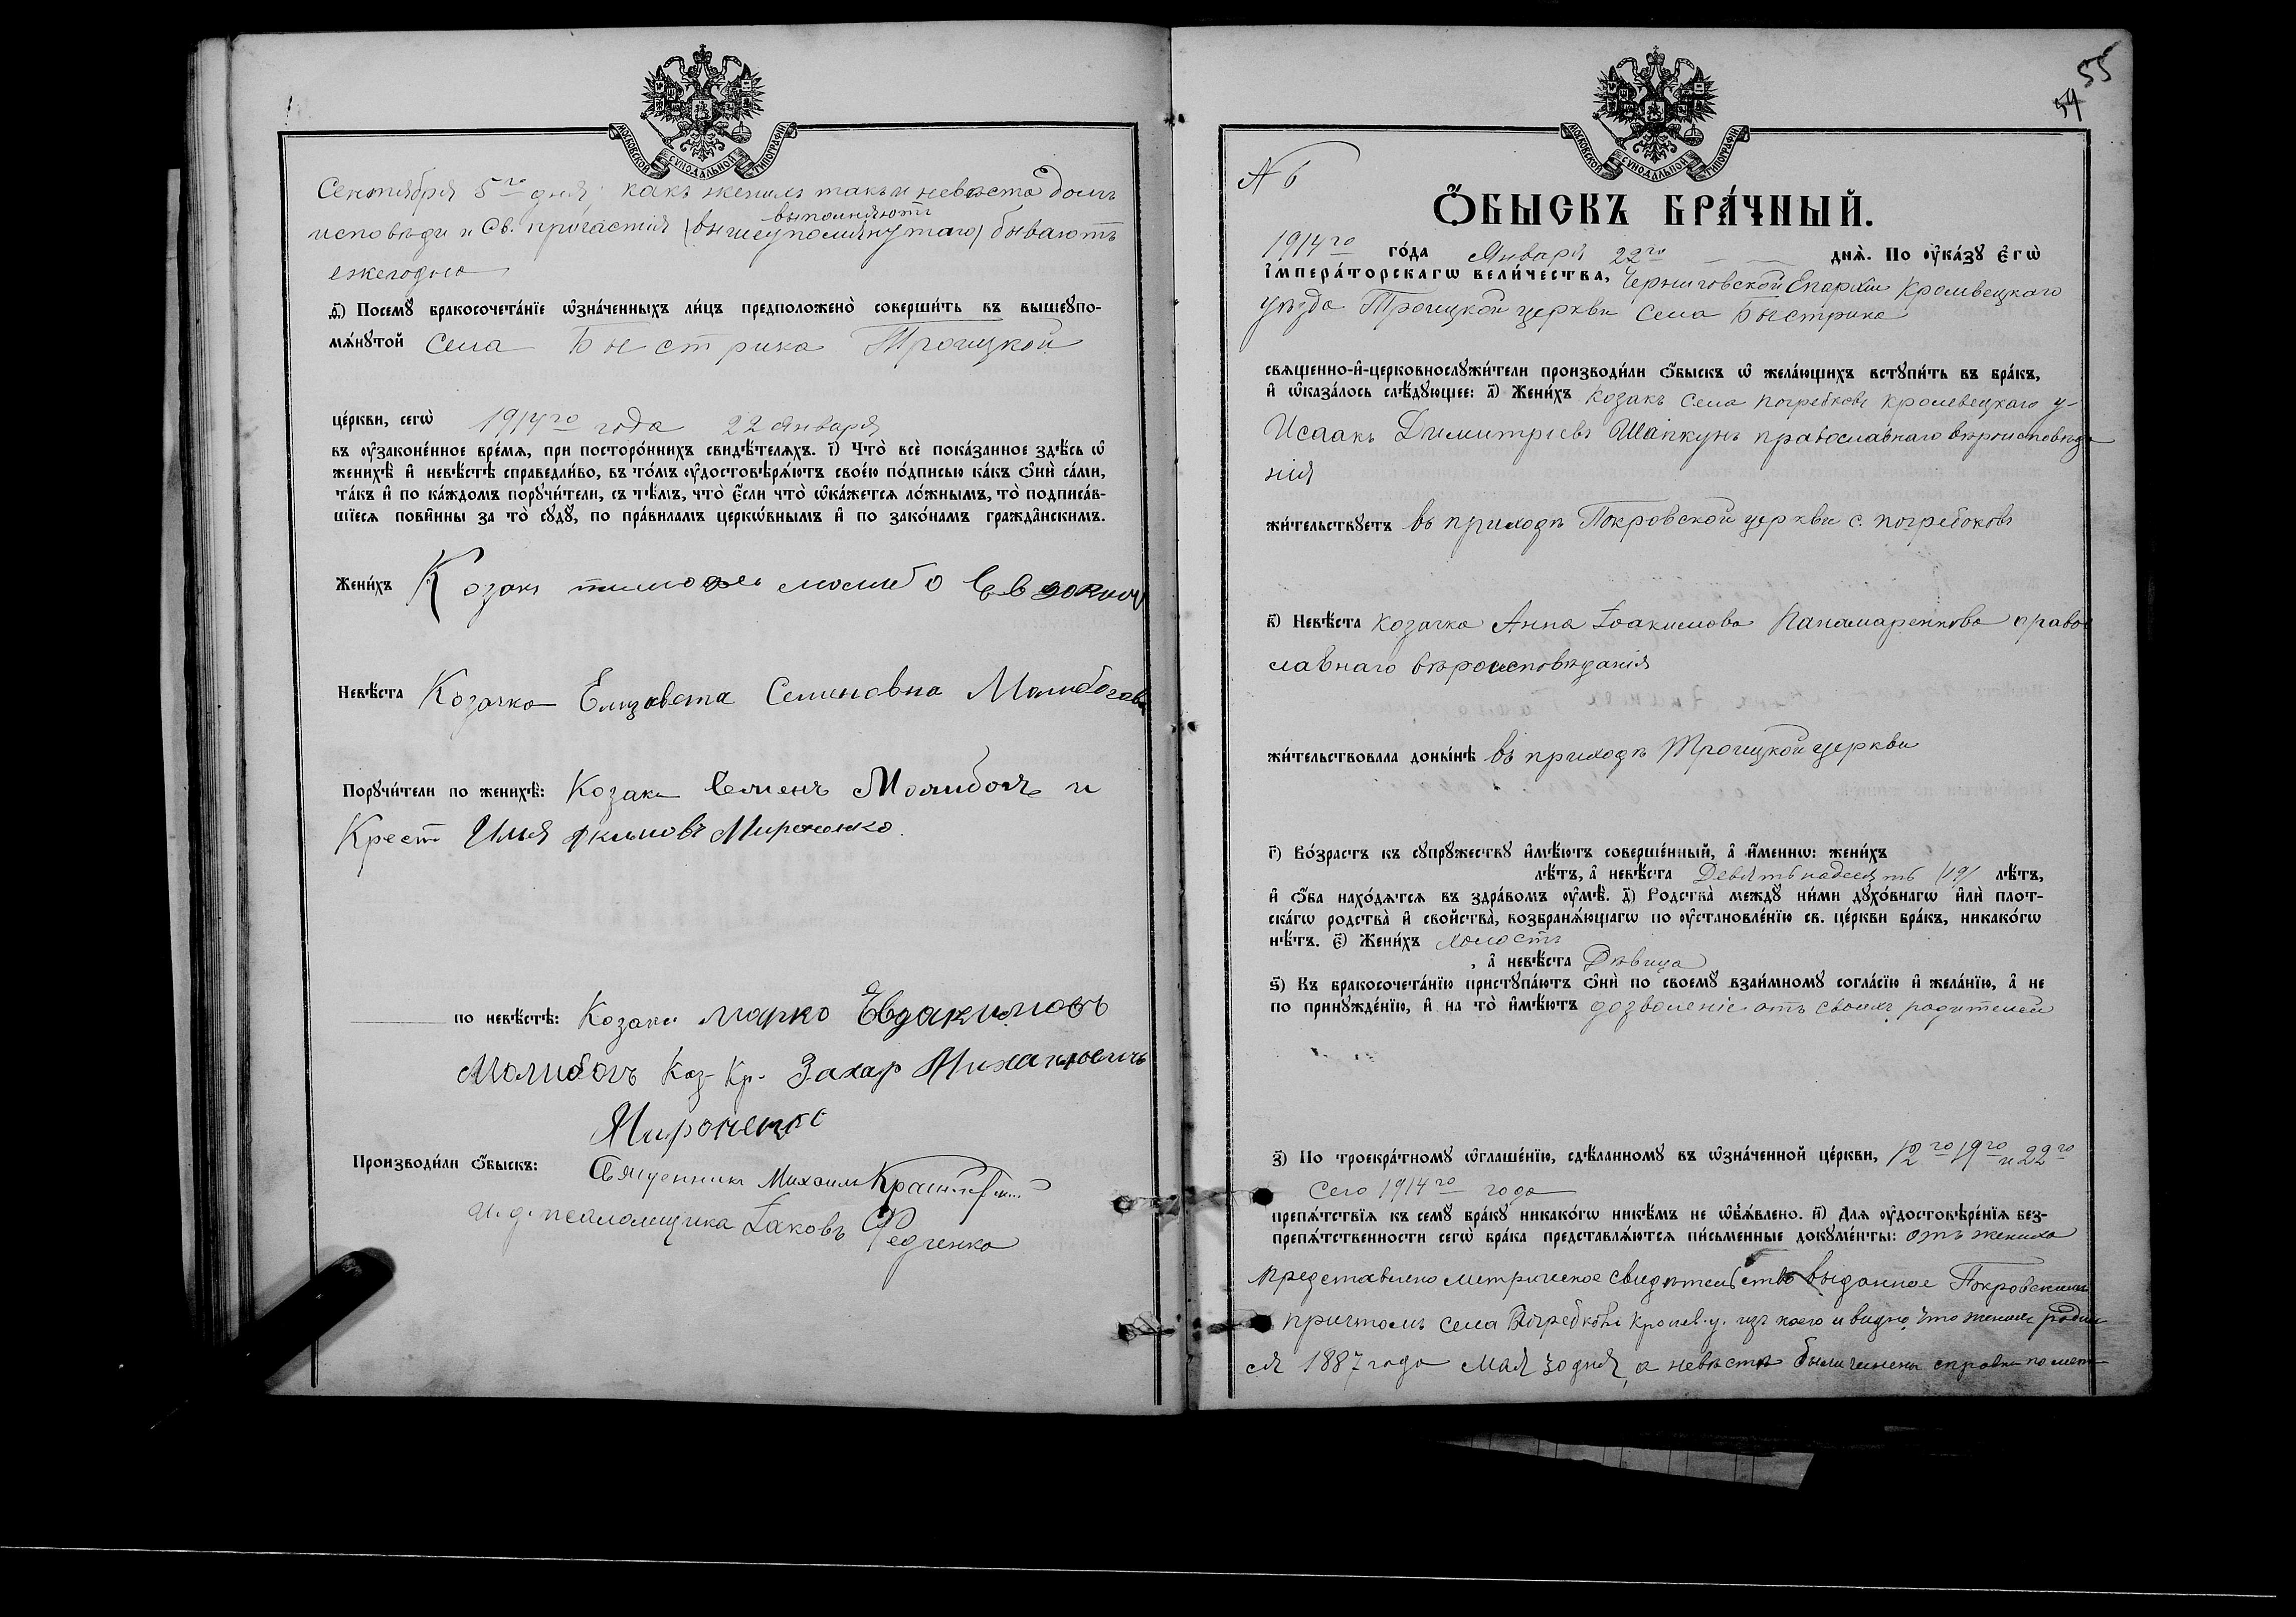 МОСКОВСКОЙ СѴНОДАЛЬНОЙ ТИПОГРАФІИ
Сентября 5го дня; какъ женихъ такъ и невѣста долгъ
выполняютъ
исповѣди и Св. причастія (вышеупомянутаго) бываютъ
ежегодно
д҃) Посемꙋ бракосочета́нїе ѡ҆зна́ченныхъ ли́цъ предположено̀ соверши́ть въ вышеꙋпо-
мѧ́нꙋтой Села Быстрика Троицкой
це́ркви, сегѡ̀ 1914го года 22 января
въ ᲂу҆зако́ненное вре́мѧ, при посторо́ннихъ свидѣ́телѧхъ. і҃) Что̀ всѐ пока́занное здѣ́сь ѡ҆
женихѣ̀ и҆ невѣ́стѣ справедли́во, въ то́мъ ᲂу҆достовѣрѧ́ютъ свое́ю по́дписью ка́къ ѻ҆нѝ са́ми,
та́къ и҆ по ка́ждомъ порꙋчи́тели, съ тѣ́мъ, что̀ є҆́сли что̀ ѡ҆ка́жется ло́жнымъ, то̀ подписа́в-
шїесѧ пови́нны за то̀ сꙋдꙋ̀, по пра́виламъ церко́внымъ и҆ по зако́намъ гражда́нскимъ.
Жени́хъ Козакъ тимофѣ молибо Евдоким
Невѣ́ста Козачка Елизавета Семиновна Молибогова
Порꙋчи́тели по женихѣ̀: Козакъ Семенъ Молибогъ и
Крест Илья Якимовъ Мироненко.
по невѣ́стѣ: Козаки марко Евдакимовъ
Молибогъ Коз- Кр- Захар Михайловичъ
Мироненко
Производи́ли ѻ҆́быскъ: Священникъ Михаилъ
и. д. псаломщика Іаковъ Федченко
55
54
МОСКОВСКОЙ СѴНОДАЛЬНОЙ ТИПОГРАФІИ
N 6
Ѻ҆́БЫСКЪ БРА́ЧНЫЙ.
1914го го́да Января 22го днѧ̀. По ᲂу҆ка́зꙋ є҆гѡ̀
і҆мпера́торскагѡ вели́чества, Черниговской Епархіи Кролевецкаго
уѣзда Троицкой церкви Села Быстрика
свѧще́нно-и҆-церковнослꙋжи́тели производи́ли ѻ҆́быскъ ѡ҆ жела́ющихъ встꙋпи́ть въ бра́къ,
и҆ ѡ҆каза́лось слѣ́дꙋющее: а҃) Жени́хъ Козакъ Села Погребковъ Кролевецкаго у-
Исаакъ Димитріевъ Шапкунъ православнаго вѣроисповѣда
нія
жи́тельствꙋетъ въ приходѣ Покровской церкви с. Погребковъ
в҃) Невѣ́ста Козачка Анна Іоакимова Панамаренкова право
славнаго вѣроисповѣданія
жи́тельствовала доны́нѣ въ приходѣ Троицкой церкви
г҃) Во́зрастъ къ сꙋпрꙋ́жествꙋ и҆мѣ́ютъ соверше́нный, а҆ и҆́меннѡ: жени́хъ
лѣ́тъ, а҆ невѣ́ста Девятнадесять (19) лѣ́тъ,
и҆ ѻ҆́ба нахо́дѧтсѧ въ здра́вомъ ᲂу҆мѣ̀. д҃) Родства̀ междꙋ ни́ми дꙋхо́внагѡ и҆лѝ плот-
ска́гѡ родства̀ и҆ свойства̀, возбранѧ́ющагѡ по ᲂу҆становле́нїю св. це́ркви бра́къ, никако́гѡ
нѣ́тъ. є҃) Жени́хъ холостъ
, а҆ невѣ́ста Дѣвица
ѕ҃) Къ бракосочета́нїю пристꙋпа́ютъ ѻ҆нѝ по своемꙋ̀ взаи́мномꙋ согла́сїю и҆ жела́нїю, а҆ не
по принꙋжде́нїю, и҆ на то̀ и҆мѣ́ютъ дозволеніе отъ своихъ родителей
з҃) По троекра́тномꙋ ѡ҆глаше́нїю, сдѣ́ланномꙋ въ ѡ҆зна́ченной це́ркви, 12го 19го и 22го
Сего 1914го года
препѧ́тствїѧ къ семꙋ̀ бра́кꙋ никако́гѡ никѣ́мъ не ѡ҆б̾ѧ́влено. и҃) Длѧ ᲂу҆достовѣре́нїѧ без-
препѧ́тственности сегѡ̀ бра́ка представлѧ́ютсѧ пи́сьменные докꙋме́нты: отъ жениха
представлено метрическое свидѣтельство выданное Покровскимъ
причтомъ села Погребковъ Кролев. у. изъ коего и видно, что женихъ родил
ся 1887 года мая 30 дня, а невѣстѣ были чинены справки по мет-